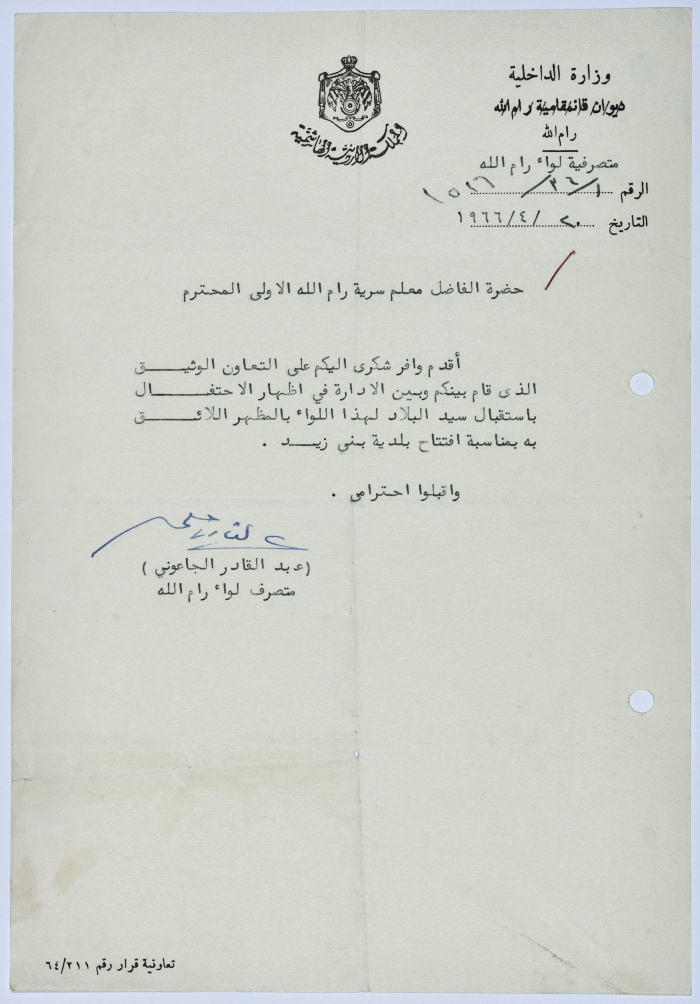 وزارة الداخلية
ديوان قائمقامية رام الله
رام الله
المملكة الاردنية الهاشمية
متصرفية لواء رام الله
الرقم ١/٣٦/١٥٢٦
التاريخ ٢٠/٤/١٩٦٦
حضرة الفاضل معلم سرية رام الله الاولى المحترم
أقدم وافر شكرى اليكم على التعاون الوثيـــق
الذى قام بينكم وبين الادارة في اظهار الاحتفـــال
باستقبال سيد البلاد لهذا اللواء بالمظهر اللائـــق
به بمناسبة افتتاح بلدية بني زيـــد .
واقبلوا احترامى .
(عبد القادر الجاعوني )
متصرف لواء رام الله
تعاونية قرار رقم ٦٤/٢١١